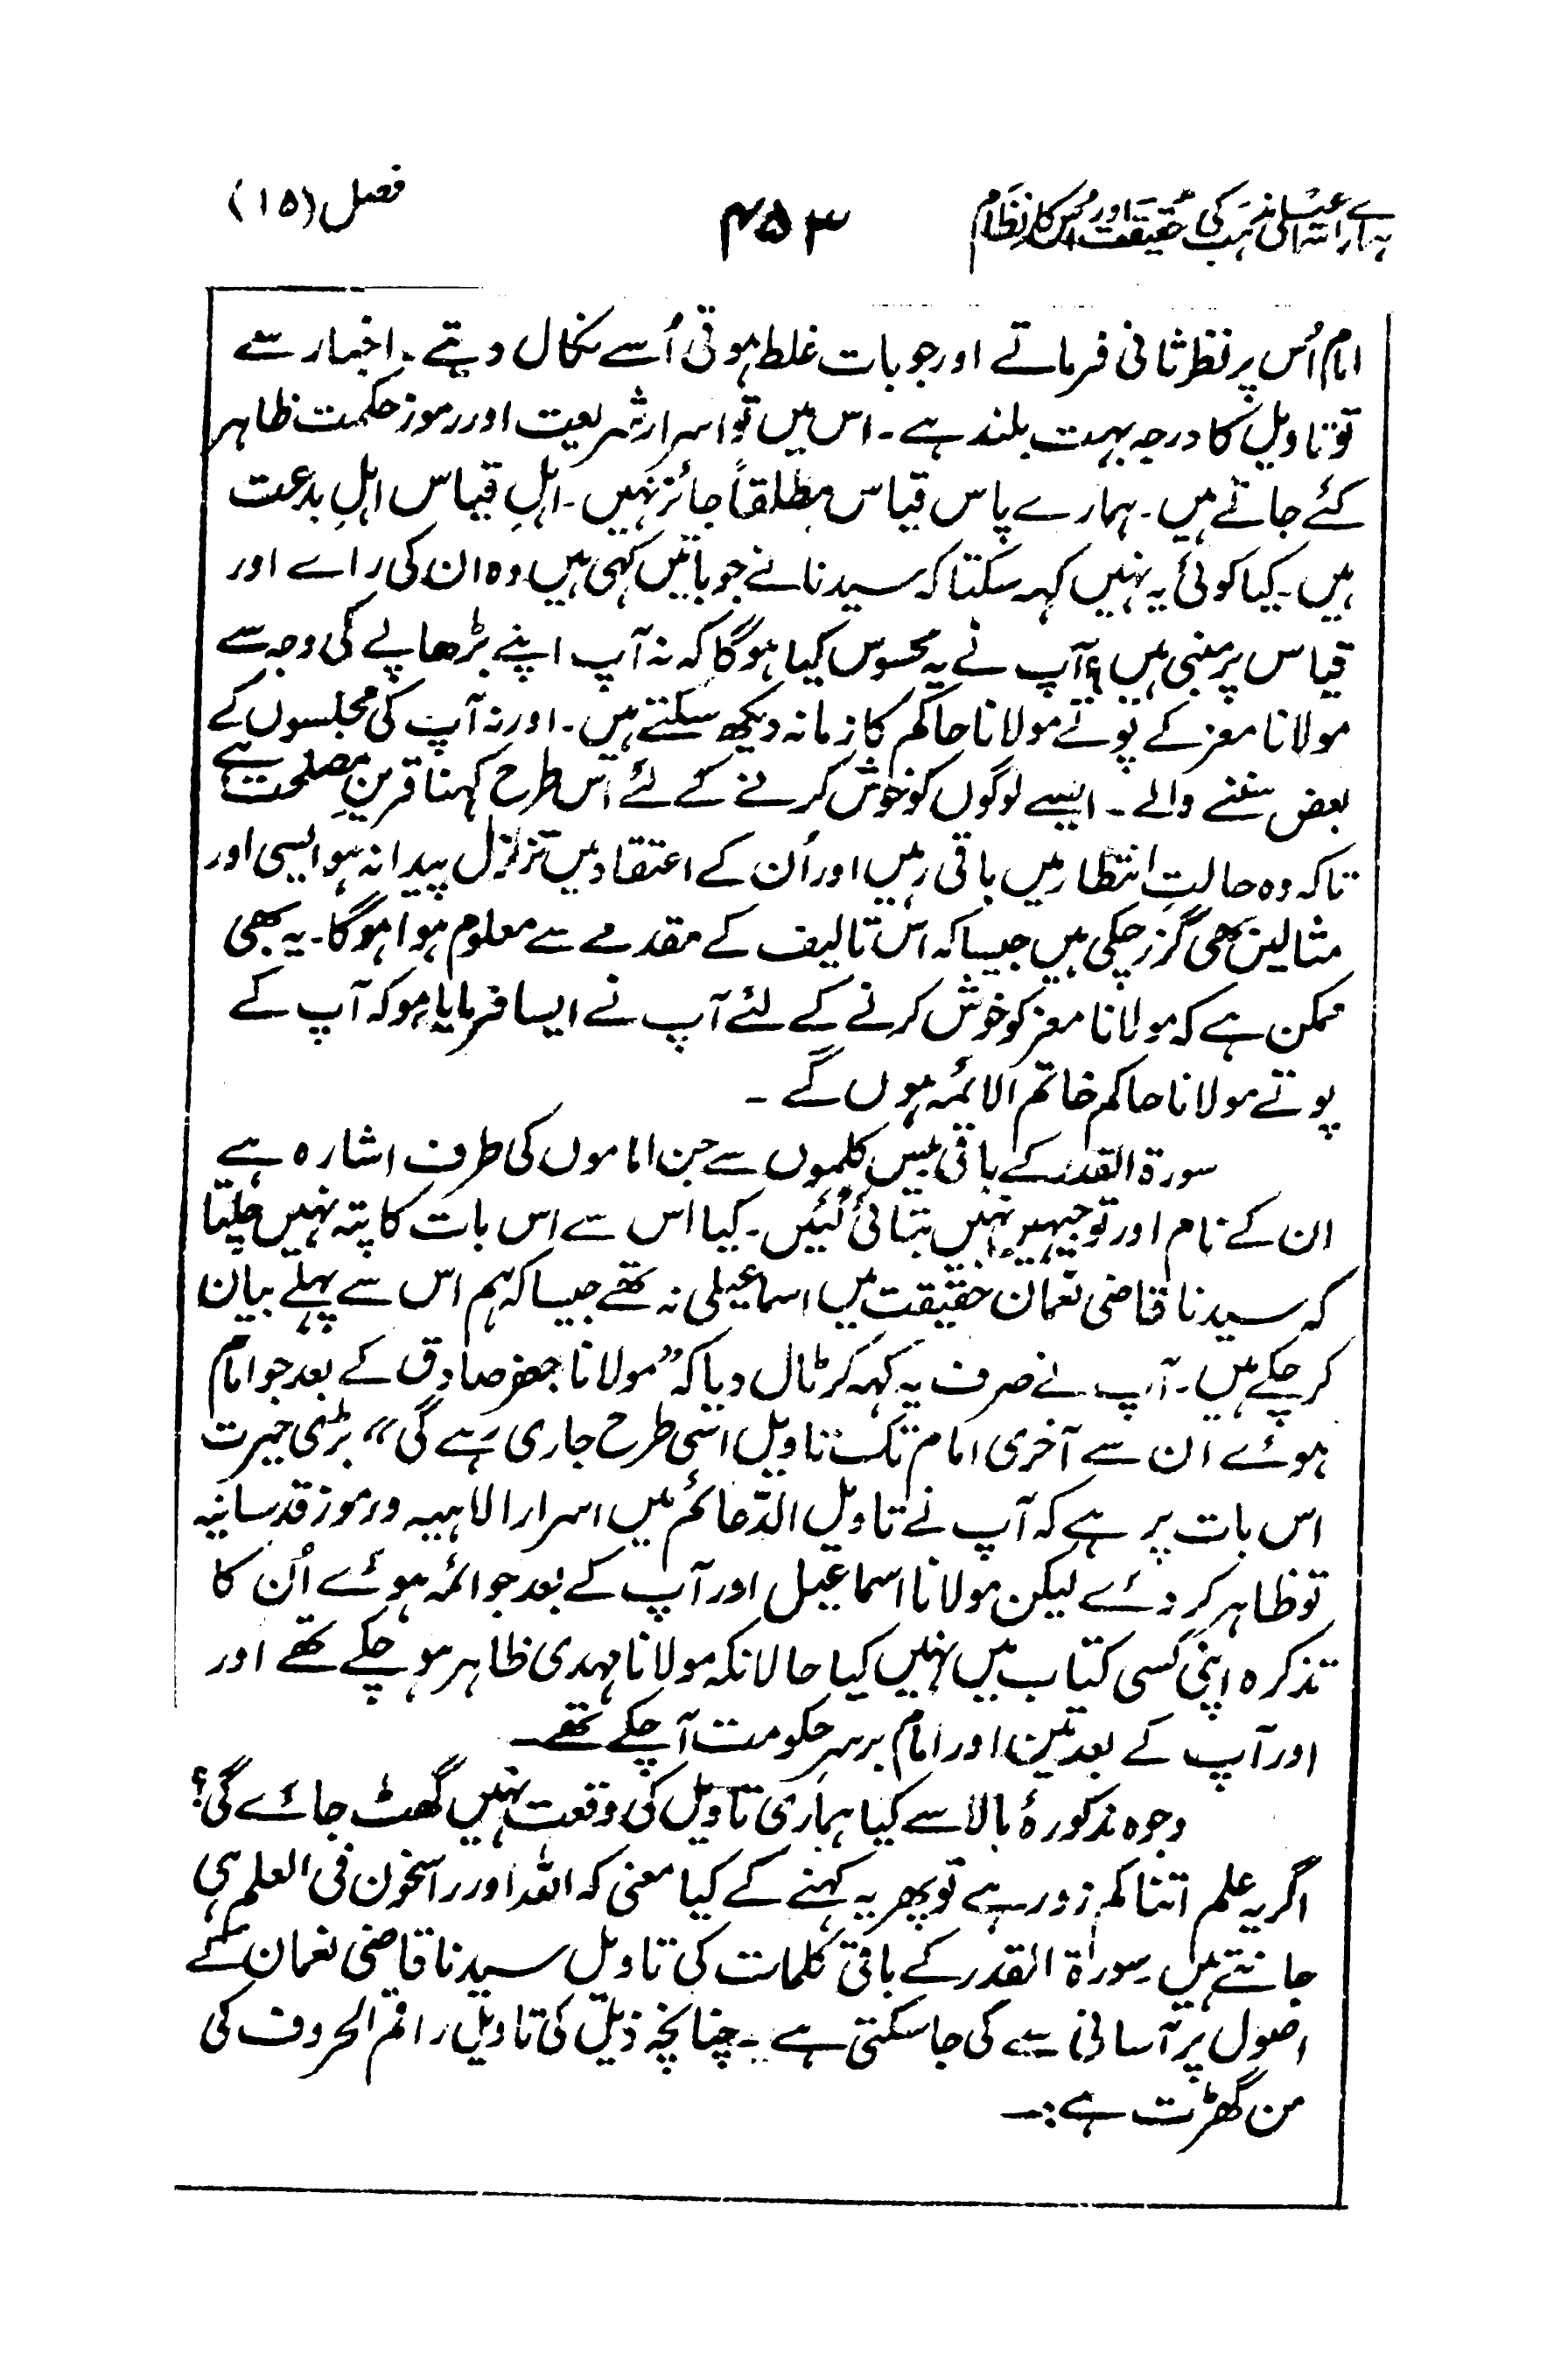 ہمارے اسماعیلی مذہب کی حقیقت اور اس کا نظام
۴۵۳
فصل (۱۵)
امام اُس پر نظر ثانی فرماتے اور جو بات غلط ہوتی اُسے نکال دیتے۔ اخبار سے
تو تاویل کا درجہ بہت بلند ہے۔ اس میں تو اسرار شریعت اور رموز حکمت ظاہر
کئے جاتے ہیں۔ ہمارے پاس قیاس مطلقاً جائز نہیں۔ اہلِ قیاس اہلِ بدعت
ہیں۔ کیا کوئی یہ نہیں کہہ سکتا کہ سیدنا نے جو باتیں کہی ہیں وہ ان کی راے اور
قیاس پر مبنی ہیں؟ آپ نے یہ محسوس کیا ہوگا کہ نہ آپ اپنے بڑھاپے کی وجہ سے
مولانا معز کے پوتے مولانا حاکم کا زمانہ دیکھ سکتے ہیں۔ اور نہ آپ کی مجلسوں کے
بعض سننے والے۔ ایسے لوگوں کو خوش کرنے کے لئے اس طرح کہنا قرینِ مصلحت ہے
تاکہ وہ حالتِ انتظار میں باقی رہیں اور اُن کے اعتقاد میں تزلزل پیدا نہ ہو ایسی اور
مثالیں بھی گزر چکی ہیں جیسا کہ اس تالیف کے مقدمے سے معلوم ہوا ہوگا۔ یہ بھی
ممکن ہے کہ مولانا معز کو خوش کرنے کے لئے آپ نے ایسا فرمایا ہو کہ آپ کے
پوتے مولانا حاکم خاتم الائمہ ہوں گے۔
سورۃ القدر کے باقی بیس کلموں سے جن اماموں کی طرف اشارہ ہے
ان کے نام اور توجیہیں نہیں بتائی گئیں۔ کیا اس سے اس بات کا پتہ نہیں چلتا
کہ سیدنا قاضی نعمان حقیقت میں اسماعیلی نہ تھے جیسا کہ ہم اس سے پہلے بیان
کر چکے ہیں۔ آپ نے صرف یہ کہہ کر ٹال دیا کہ "مولانا جعفر صادق کے بعد جو امام
ہوئے ان سے آخری امام تک تاویل اسی طرح جاری رہے گی" بڑی حیرت
اس بات پر ہے کہ آپ نے تاویل الدّعائم میں اسرار الاہیہ و رموز قدسانیہ
تو ظاہر کر دئے لیکن مولانا اسماعیل اور آپ کے بعد جو ائمہ ہوئے اُن کا
تذکرہ اپنی کسی کتاب میں نہیں کیا حالانکہ مولانا مہدی ظاہر ہو چکے تھے اور
اور آپ کے بعد تین اور امام برسر حکومت آ چکے تھے۔
وجوہ مذکورۂ بالا سے کیا ہماری تاویل کی وقعت نہیں گھٹ جائے گی؟
اگر یہ علم اتنا کم زور ہے تو پھر یہ کہنے کے کیا معنی کہ اللہ اور راسخون فی العلم ہی
جانتے ہیں سورۃ القدر کے باقی کلمات کی تاویل سیدنا قاضی نعمان کے
اصول پر آسانی سے کی جا سکتی ہے۔ چنانچہ ذیل کی تاویل راقم الحروف کی
من گھڑت ہے:۔